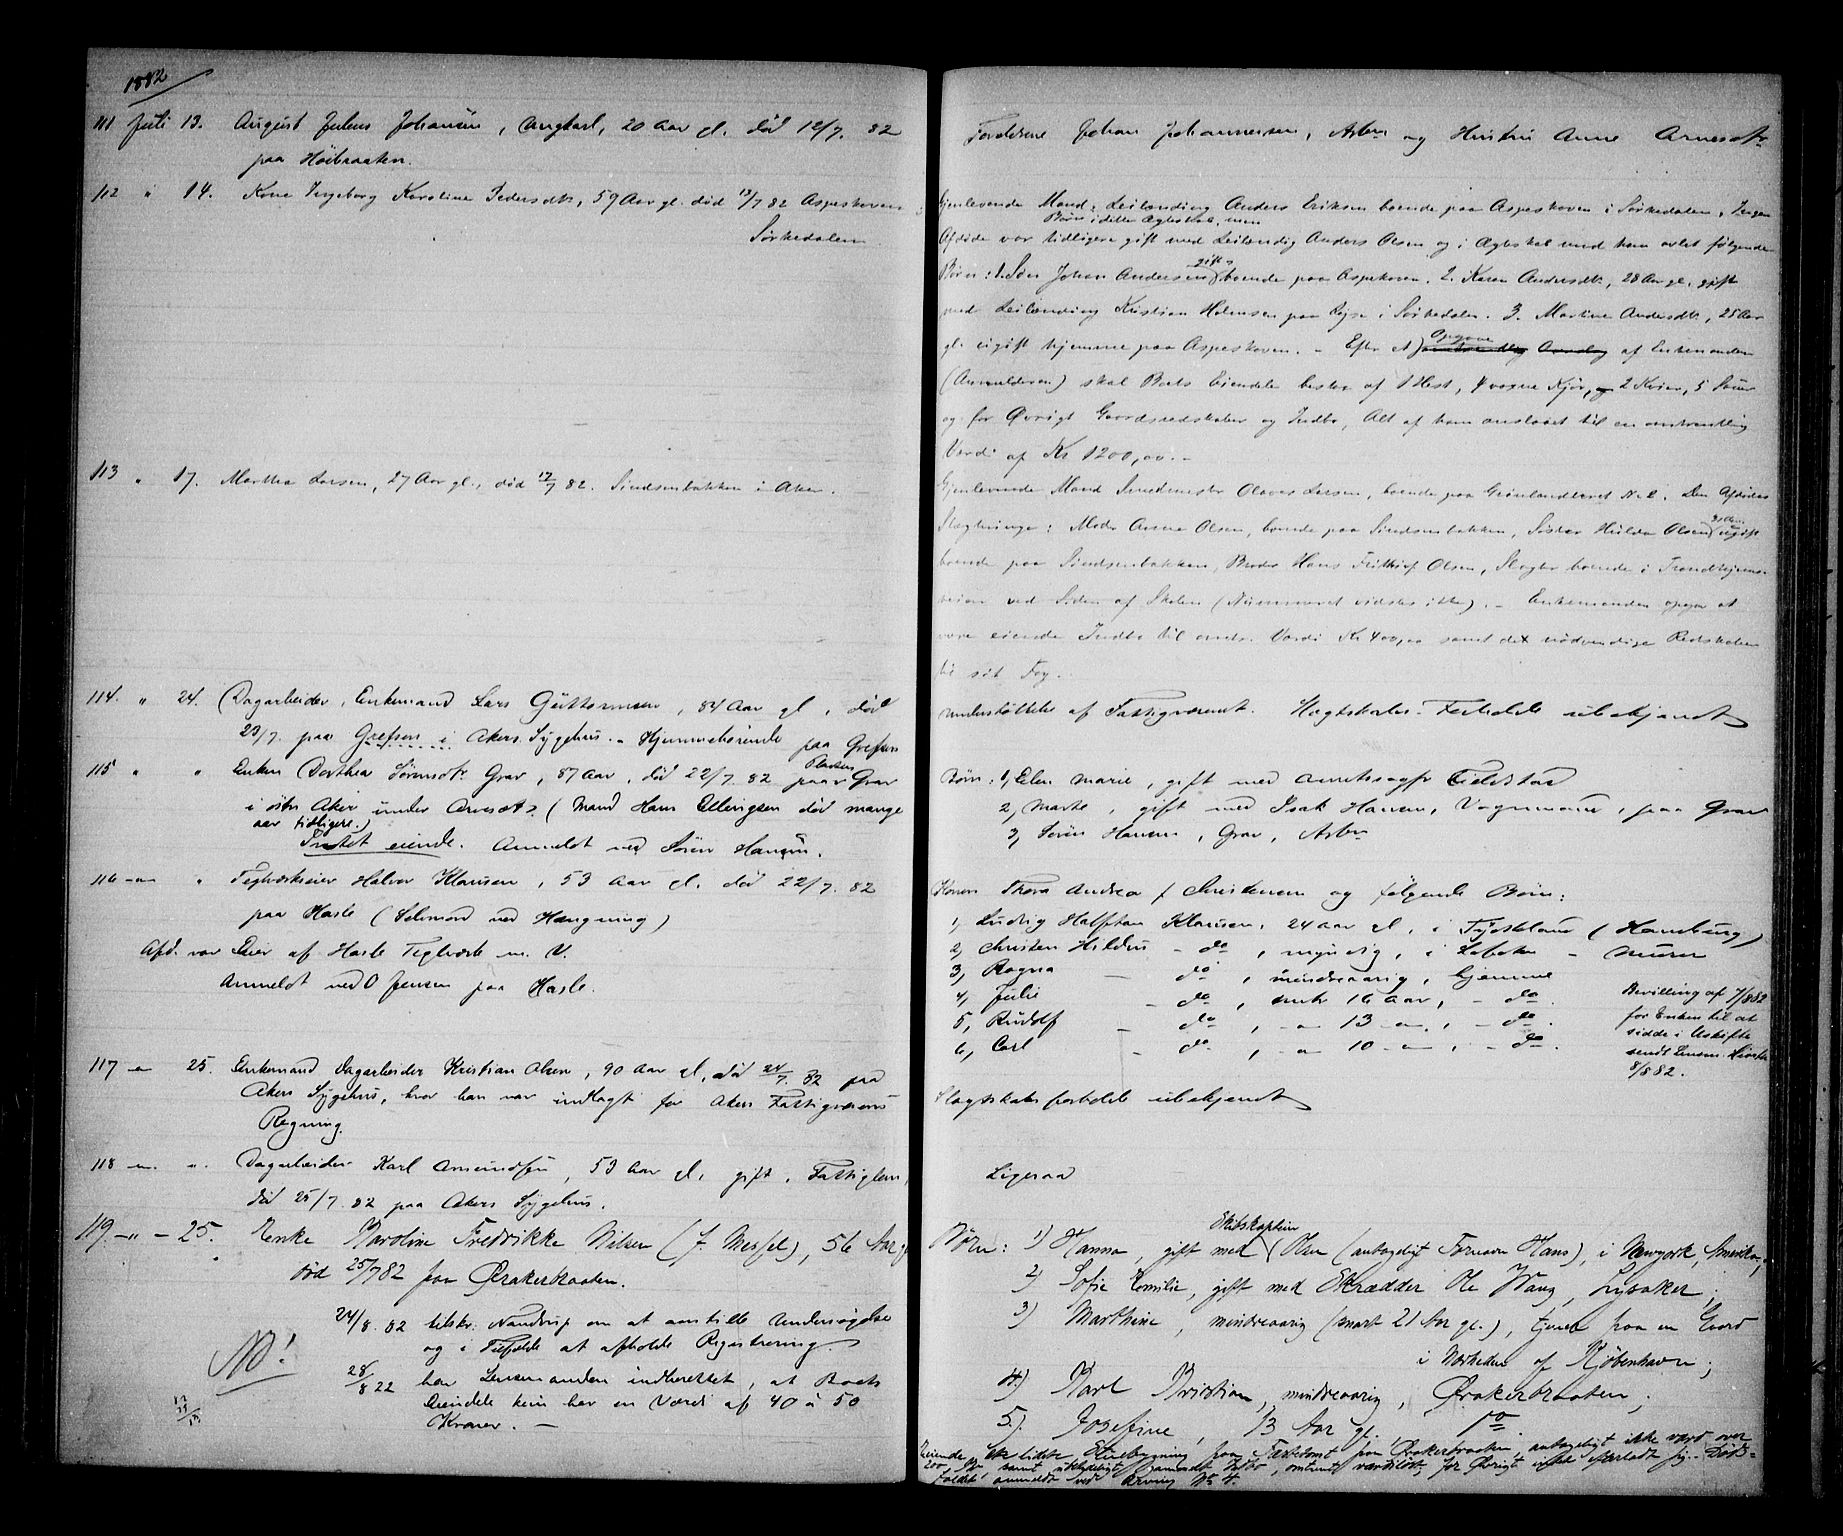 1882
111 Juli 13. August Julius Johansen, Ungkarl, 20 Aar gl. død 12/7. 82
paa Høibraaten.
112 " 14. Kone Ingeborg Karoline Pedersdtr, 59 Aar gl. død 13/7 82 Aspeskoven
Sørkedalen
113 " 17. Marthea Larsen, 27 Aar gl., død 12/7 82. Sinsenbakken i Aker.
114. " 24. Dagarbeider, Enkemand Lars Guttormsen, 84 Aar gl, død
23/7. paa Grefsen i Akers Sygehus. Hjemmehørende paa Grefsen
115 " " Enken Dorthea Sørensdtr Grav, 87 Aar, død 22/7 82 paa Pladsen Grav
i østre Aker under (Mand Hans Ellingsen død mange
aar tidligere.)
Intet eiende. Anmeldt ved Søren Hansen.
116 -"- " Teglværkseier Halvor Klausen, 53 Aar gl. død 22/7. 82
paa Hasle (Selvmord ved Hængning)
Afd. var Eier af Hasle Teglværk m. V.
Anmeldt ved O Jensen paa Hasle.
117 -"- 25. Enkemand Dagarbeider Kristian Olsen, 90 Aar gl, død 24/7. 82 paa
Akers Sygehus, hvor han var indlagt for Akers Fattigvæsens
Regning.
118 -"- ". Dagarbeider Karl Amundsen, 53 Aar gl, gift, Fattiglem,
død 25/7. 82 paa Akers Sygehus.
119. -"- - 25. Enke Karoline Fredrikke Nilsen (f. Messel), 56 Aar gl
død 25/7 82 paa Ørakerbraaten.
24/8. 82 tilskr. Nandrup om at anstille Undersøgelse
og i Tilfælde at afholde Registrering.
NB!
28/8 82 har Lensmanden indberettet, at Boets
Eiendele kun har en Værdi af 40 à 50
Kroner. —
Forældrene Johan Johannesen, Arbm og Hustru Anne Arnesdtr
Gjenlevende Mand: Leilænding Anders Eriksen boende paa Aspeskoven i Sørkedalen, Ingen
Børn i dette Ægteskab, men
Afdøde var tidligere gift med Leilændig Anders Olsen og i Ægteskab med ham avlet følgende
Børn: 1. Søn Johan Andersen, gift, boende paa Aspeskoven. 2. Karen Andersdtr., 28 Aar gl. gift
med Leilænding Kristian Halvorsen paa i Sørkedalen. 3. Martine Andersdtr., 25 Aar
gl. ugift hjemme paa Aspeskoven. - Efter Opgave af Enkemanden
(Anmelderen) skal Boets Eiendele bestaa af 1 Hest, 4 voxne Kjør, 2 Kvier, 5 Sauer
og for Øvrigt Gaardsredskaber og Indbo, Alt af ham anslaaet til en omtrentlig
Værdi af Kr 1200,00. -
Gjenlevende Mand Smedmester Olaves Larsen, boende paa Grønlandtorvet No 2. Den Afdødes
Slægtninge: Moder Anne Olsen, boende paa Sinsenbakken, Søster Hulda Olsen ugift
boende paa Sinsenbakken, Broder Hans Frithiof Olsen, Slagter boende i Trondhjems-
veien ved Siden af Skolen (Nummeret vidstes ikke). - Enkemanden opgav at
være eiende Indbo til omtr. Værdi Kr 400,00 samt det nødvendige Redskaber
til sit Fag.
understøttedes af Fattigvæsenet. Slægtskabs-Forholde ubekjendt
Børn: 1, Elen Marie, gift med
2, Marte, gift med Isak Hansen, Vognmand, paa Grav
3, Søren Hansen, Grav, Arbm
Konen Thora Andrea f Christensen og følgende Børn:
1, Ludvig Halftan Klausen, 24 aar gl, i Tydskland (Hamburg)
2, Christen Hildus - do, myndig, i - Murer
3, Ragna - do, mindreaarig, hjemme
4, Julie - do, omtr 16 aar, - do.
5, Rudolf - do, -"- 13 -"-, - do.
6, Carl - do, -"- 10 -"-, - do.
Bevilling af 7/8 82
for Enken til at
sidde i Uskiftet
sendt Lensm.
8/8 82.
Slægtskabsforholde ubekjendt
Ligesaa
Børn: 1) Hanna, gift med Skibskaptein Olsen (antageligt Fornavn Hans), i Newyork, Amerika;
2) Sofie Emilie, gift med Skrædder Ole Wang, Lysaker;
3) Marthine, mindreaarig (snart 21 Aar gl.), tjener paa en Gaard
i Nærheden af Kjøbenhavn;
4) Karl Kristian, mindreaarig, Ørakerbraaten;
5.) Josefine, 13 Aar gl. do.
Eiende en liden Stuebygning paa Fæstetomt paa Ørakerbraaten, antageligt ikke værd over
200 Kr samt ubetydeligt gammelt Indbo, omtrent værdiløst, for Øvrigt intet efterladt sig. Døds-
faldet anmeldt ved No 4.